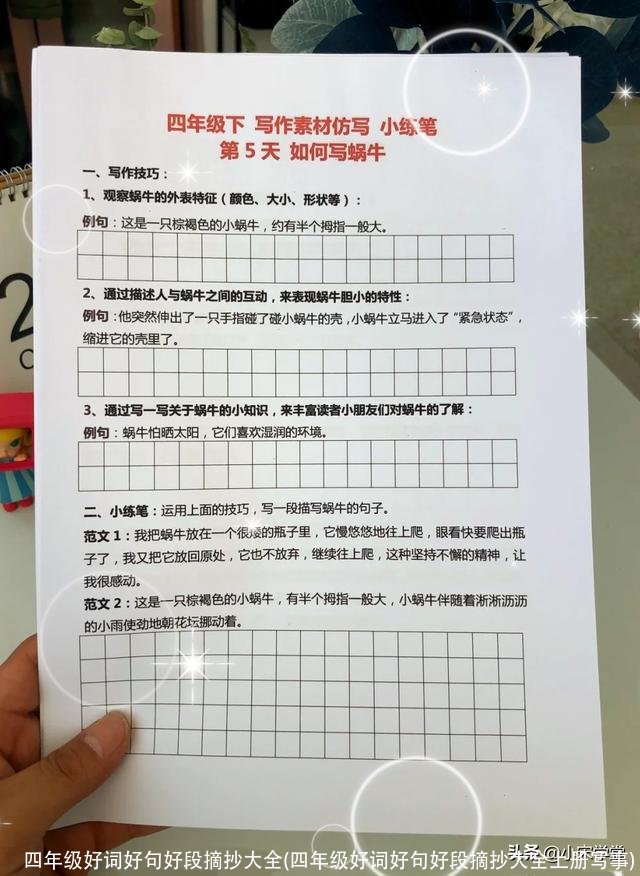 四年级下 写作素材仿写 小练笔
第 5 天 如何写蜗牛
一、写作技巧：
1、观察蜗牛的外表特征（颜色、大小、形状等）：
例句：这是一只棕褐色的小蜗牛，约有半个拇指一般大。
2、通过描述人与蜗牛之间的互动，来表现蜗牛胆小的特性：
例句：他突然伸出了一只手指碰了碰小蜗牛的壳，小蜗牛立马进入了“紧急状态”，
缩进它的壳里了。
3、通过写一写关于蜗牛的小知识，来丰富读者小朋友们对蜗牛的了解：
例句：蜗牛怕晒太阳，它们喜欢湿润的环境。
二、小练笔：运用上面的技巧，写一段描写蜗牛的句子。
范文 1：我把蜗牛放在一个很矮的瓶子里，它慢悠悠地往上爬，眼看快要爬出瓶
子了，我又把它放回原处，它也不放弃，继续往上爬，这种坚持不懈的精神，让
我很感动。
范文 2：这是一只棕褐色的小蜗牛，有半个拇指一般大，小蜗牛伴随着淅淅沥沥
的小雨使劲地朝花坛挪动着。
2
头条 @小宋学堂
四年级好词好句好段摘抄大全(四年级好词好句好段摘抄大全上册写事)